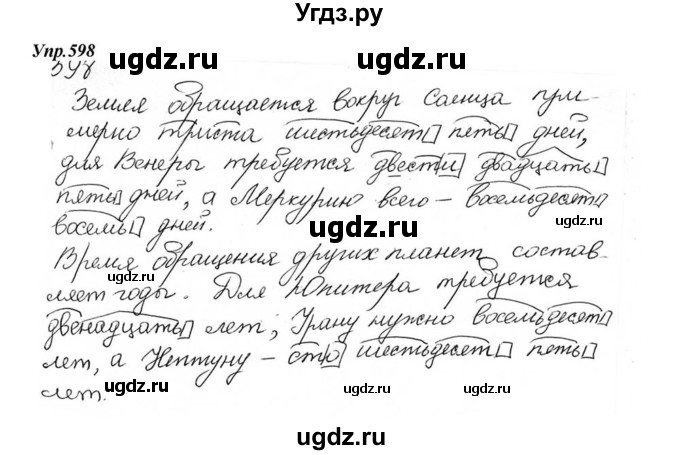 Угдз.ру
Упр.598
ugdz.ru ugdz.ru
598
Земля обращается вокруг Солнца при-
ugdz.ru
мерно триста шестьдесят пять дней,
ugdz.ru ugdz.ru
для Венеры требуется двести двадцать
пять дней, а Меркурию всего – восемьдесят
ugdz.ru
восемь дней.
ugdz.ru ugdz.ru
Время обращения других планет состав-
ляет годы. Для Юпитера требуется
ugdz.ru
двенадцать лет, Урану нужно восемьдесят
ugdz.ru ugdz.ru
лет, а Нептуну – сто шестьдесят пять
лет.
ugdz.ru ugdz.ru
ugdz.ru